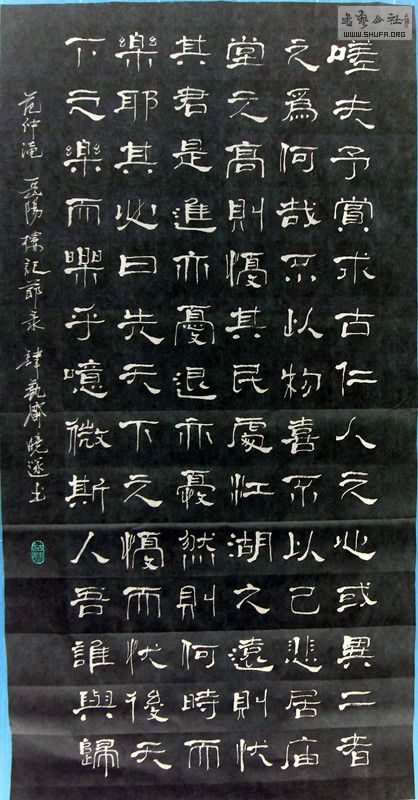 书艺公社
WWW.SHUFA.ORG
嗟夫予賞求古仁人之心或異二者
之為何哉不以物喜不以己悲居庙
堂之高則懮其民處江湖之遠則忧
其君是進亦憂退亦憂然則何時而
樂耶其必曰先天下之懮而忧後天
下之樂而樂乎噫微斯人吾誰與歸
范仲淹 岳陽樓記節录